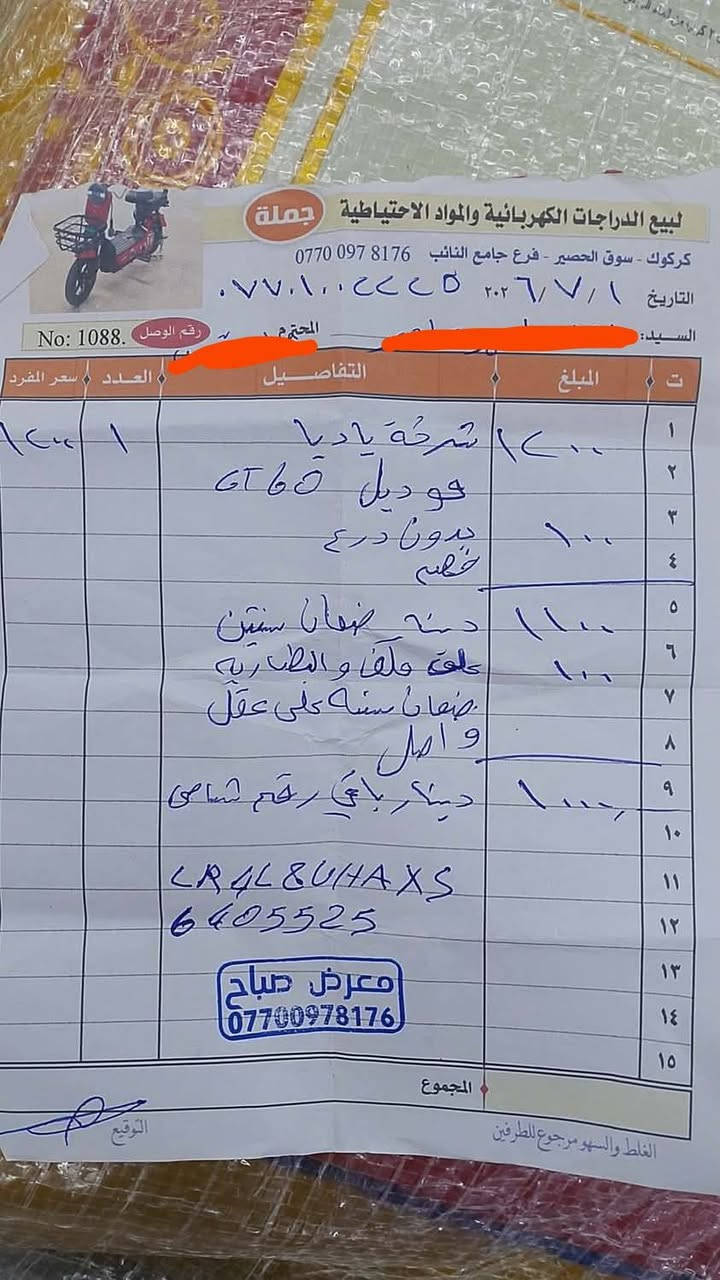 لبيع الدراجات الكهربائية والمواد الاحتياطية جملة
كركوك - سوق الحصير - فرع جامع النائب 0770 097 8176
التاريخ ١ / ٧ / ٢٠٢٦ ٠٧٧٠١٠٠٢٢٢٥
السيد: المحترم
رقم الوصل No: 1088.
ت المبلغ التفاصيل العدد سعر المفرد
١ ١٢٠٠ شركة ياديا ١ ١٢٠٠
٢ موديل GT60
٣ ١٠٠ بدون درع
٤ خصم
٥ ١١٠٠ ضمان سنتين
٦ ١٠٠ والبطارية
٧ ضمان سنه على
٨ واصل
٩ ١٠٠٠ دينار باقي رقم شاصي
١٠
١١ LR4L8UHAXS
١٢ 6405525
١٣ معرض صباح
١٤ 07700978176
١٥
المجموع
التوقيع الغلط والسهو مرجوع للطرفين